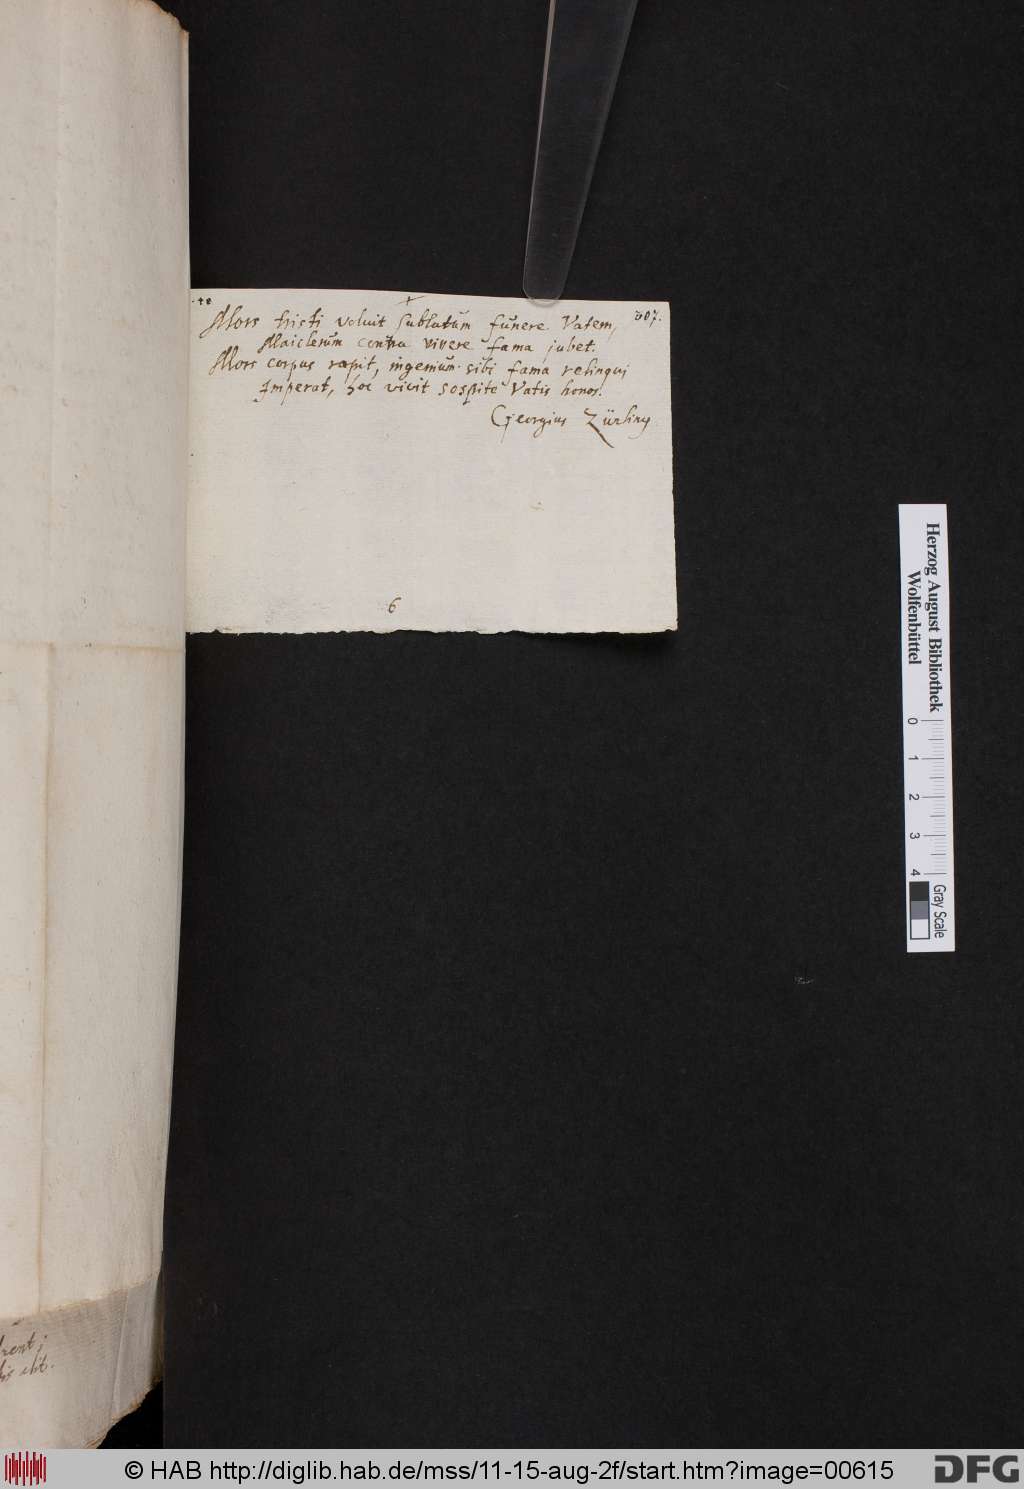 48
307.
Mors tristi voluit sublatum funere Vatem,
Maiclerum contra vivere fama jubet.
Mors corpus rapit, ingenium sibi fama relinqui
Imperat, hoc vivit sospite Vatis honos.
Georgius Zürling
6
Herzog August Bibliothek
Wolfenbüttel
0 1 2 3 4
Gray Scale
© HAB http://diglib.hab.de/mss/11-15-aug-2f/start.htm?image=00615
DFG